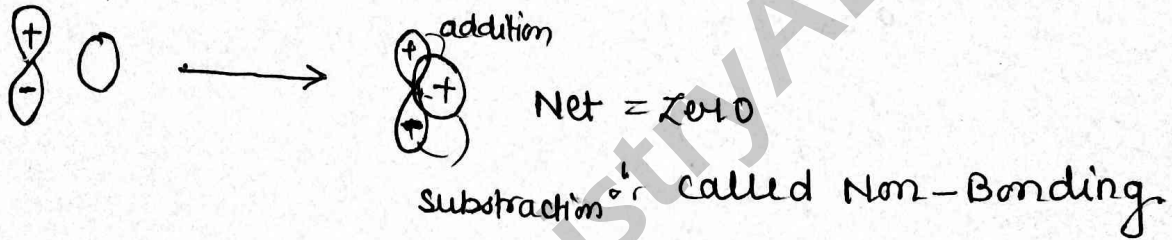 + addition
- + +
+
Net = Zero
substraction ∴ called Non-Bonding.
stryA